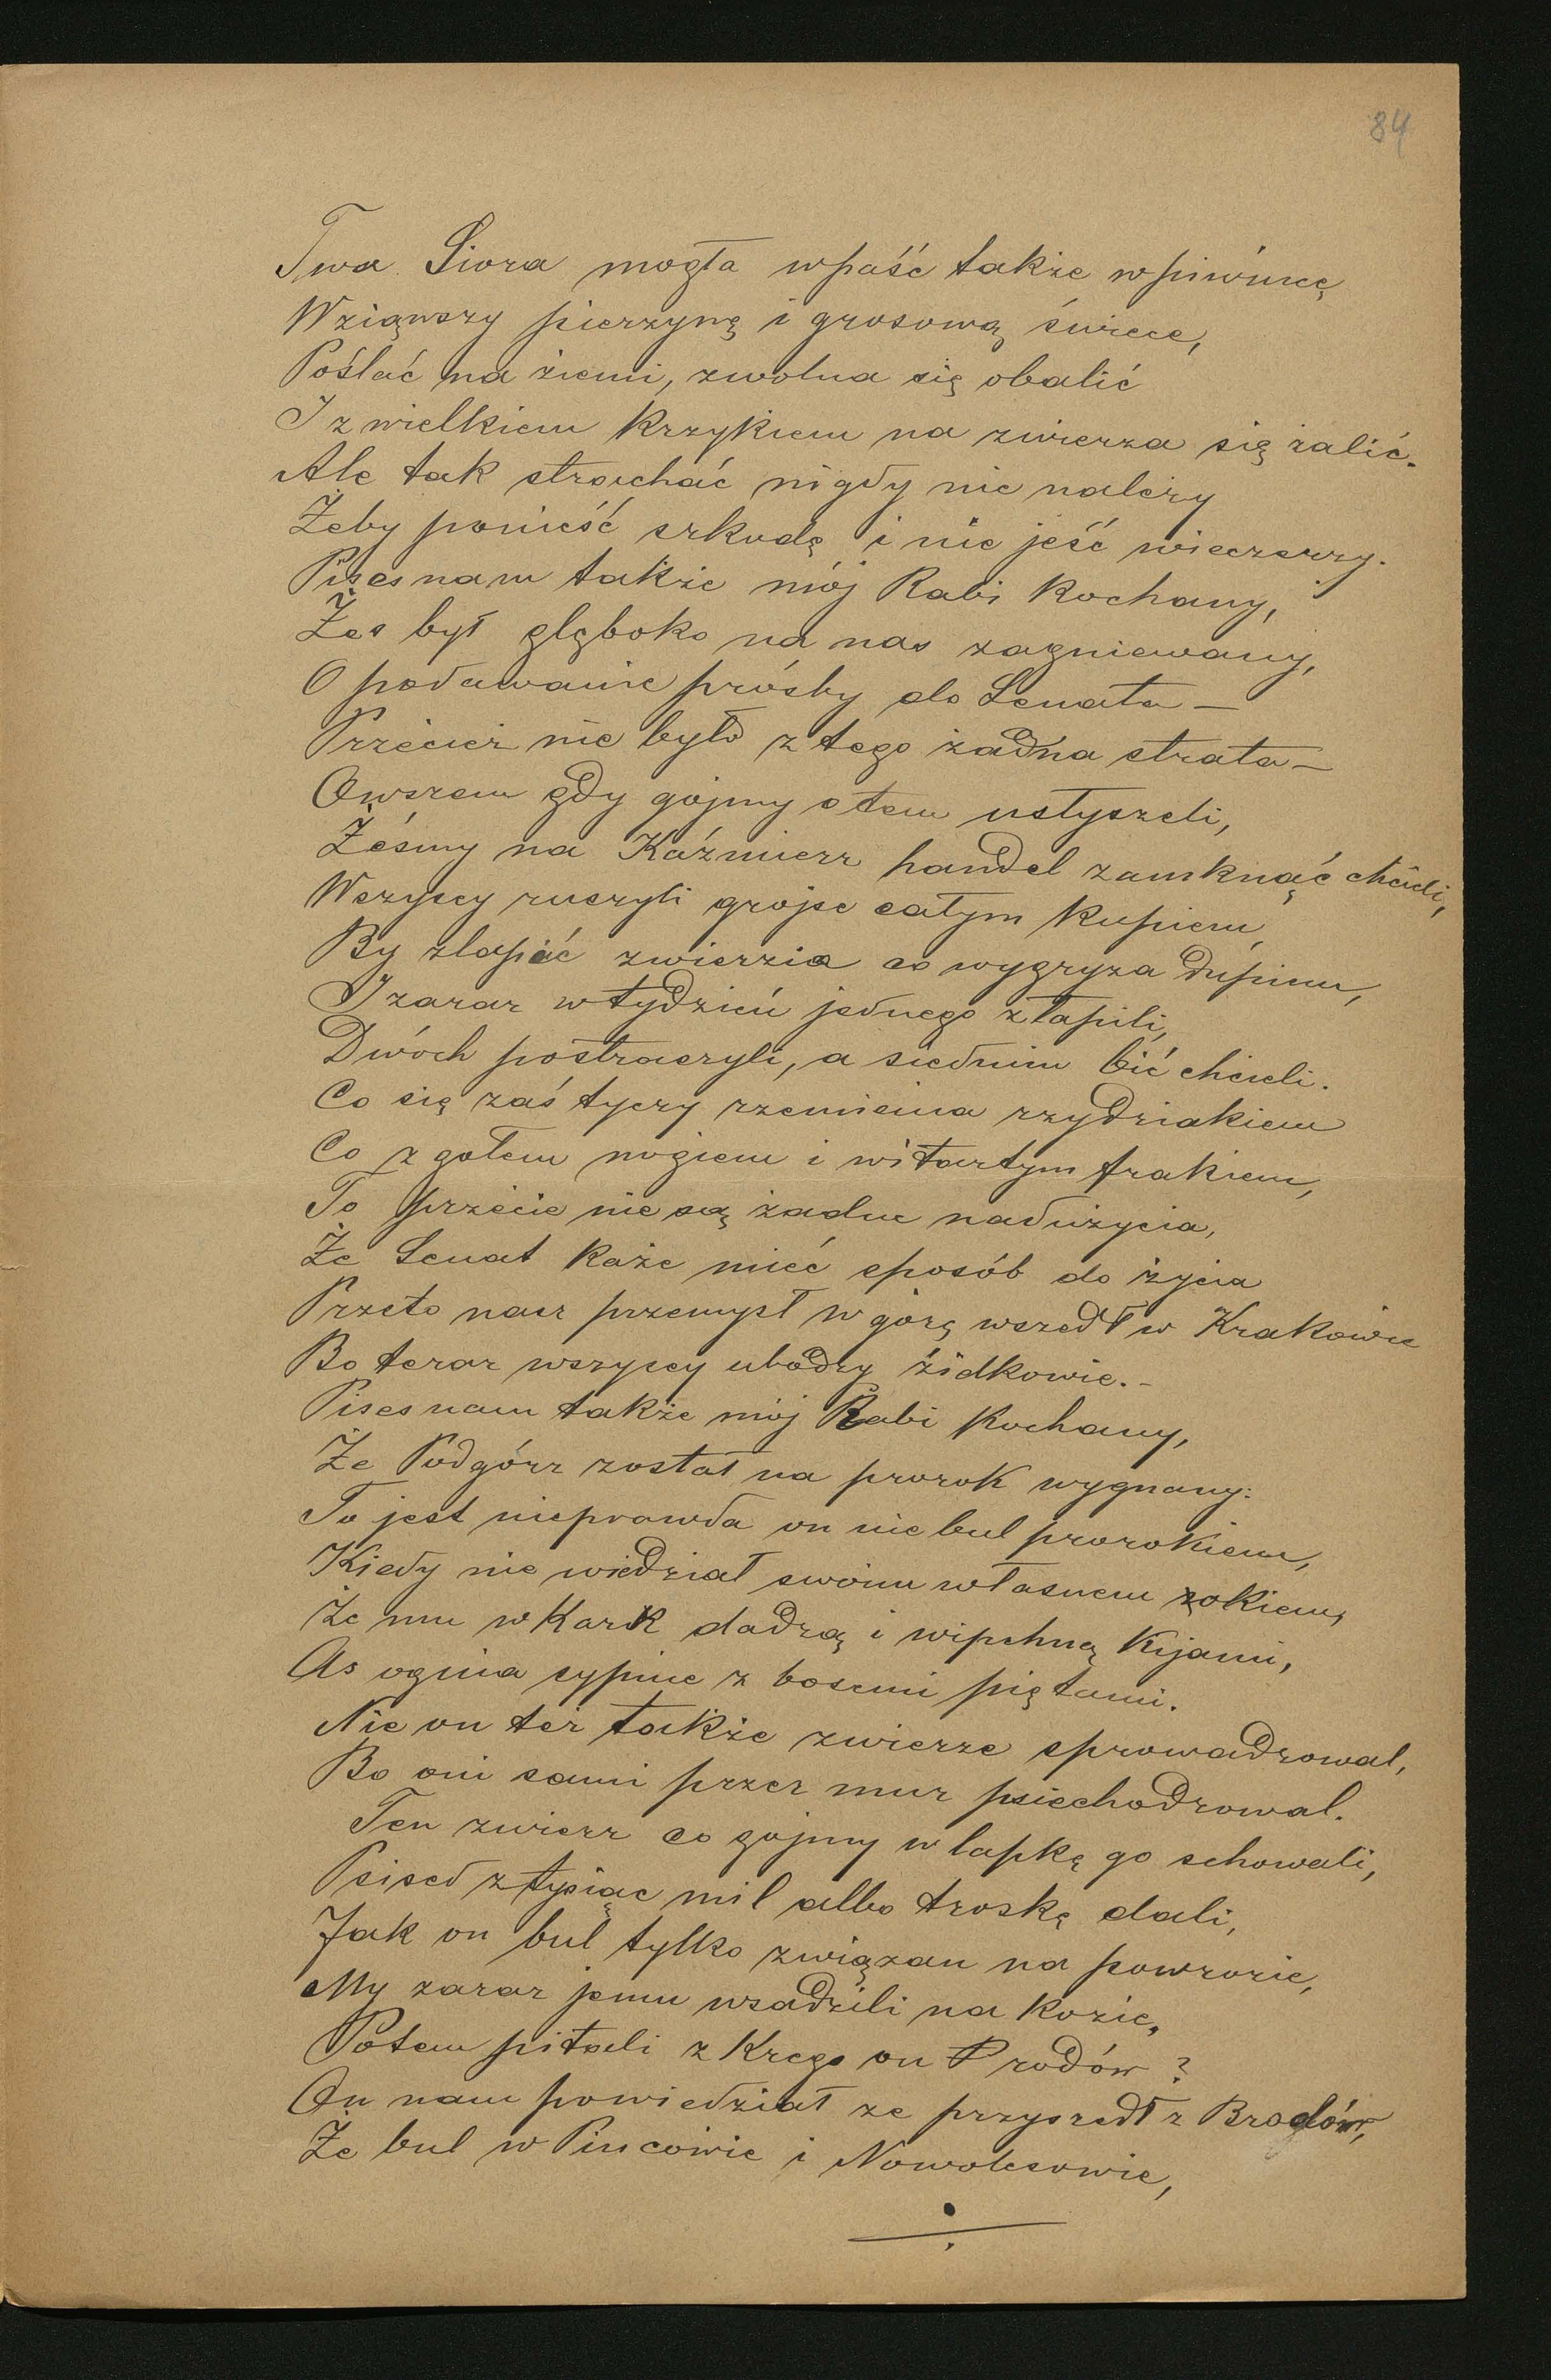 84
Twa Siora mogła wpaść także w piwnicę
Wziąwszy pierzynę i grosową świece,
Posłać na ziemi, zwolna się obalić
I z wielkiem krzykiem na zwierza się żalić.
Ale tak strachać nigdy nie należy
Żeby ponieść szkodę i nie jeść wieczerzy.
Pises nam także mój Rabi kochany,
Żes był głęboko na nas zagniewany,
O podawanie prósby do Senata –
Przecież nie było z tego żadna strata –
Owszem gdy gojmy o tem usłyszeli,
Żeśmy na Kaźmierz handel zamknąć chcieli,
Wszyscy ruszyli grojse całym kupiem
By złapać zwierzia co wygryza dupiem,
I zaraz w tydzień jednego złapili,
Dwóch postraczyli, a siednim bić chcieli.
Co się zaś tyczy rzemiensa rzydziakiem
Co z gołem nogiem i witartym frakiem,
To przecie nie są żadne nadużycia,
Że Senat każe mieć sposób do życia
Przeto nasz przemysł w górę wszedł w Krakowie
Bo teraz wszyscy ubodzy żidkowie. –
Pises nam także mój Rabi kochany,
Że Podgórz został na prorok wygnany:
To jest nieprawda on nie bul prorokiem,
Kiedy nie wiedział swoim własnem zokiem,
Że mu w kark dadzą i wipchną kijami,
As ognia sypnie z bosemi piętami.
Nie on też także zwierze sprowadzowal,
Bo oni sami przez mur psiechodzowal.
Ten zwierz co gojmy w łapkę go schowali,
Psised z tysiąc mil albo troskę dali,
Jak on bul tylko związan na powrozie,
My zaraz jemu wsadzili na kozie,
Potem pitali z krego on rodów?
On nam powiedział ze przyszedł z Brodów,
Że bul w Pincowie i Nowolesowie,